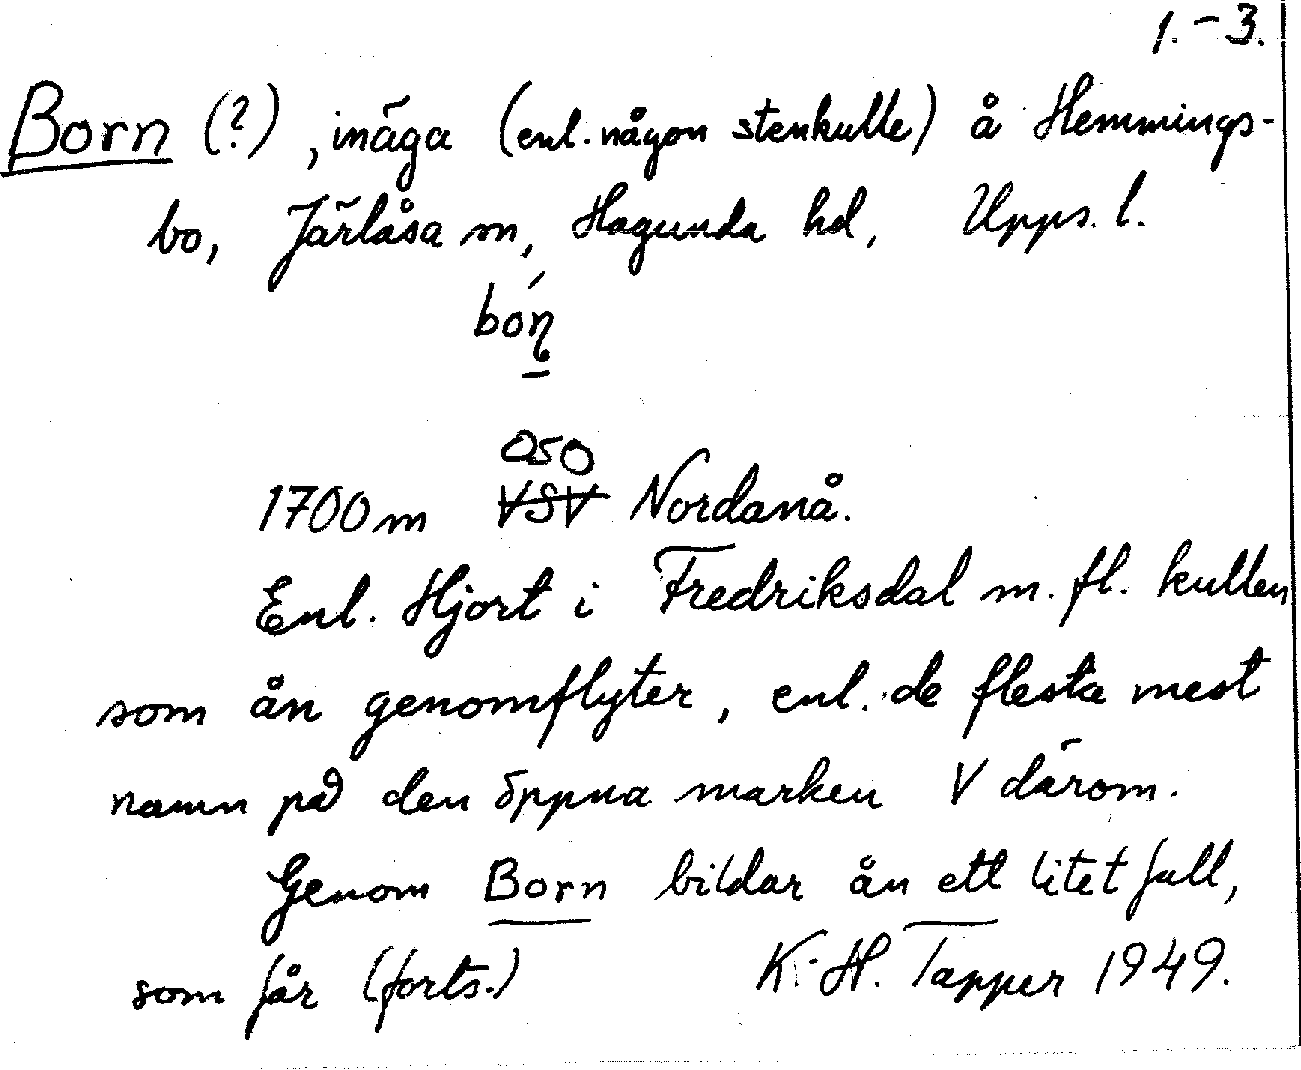 1.-3.
Born (?), inäga (enl. någon stenkulle) å Hemmings-
bo, Järlåsa sn, Hagunda hd, Upps. l.
OSO
1700 m VSV Nordanå.
Enl. Hjort i Fredriksdal m. fl. kullen
som ån genomflyter, enl. de flesta mest
namn på den öppna marken V därom.
Genom Born bildar ån ett litet fall,
som får (forts.) K.-H. Tapper 1949.